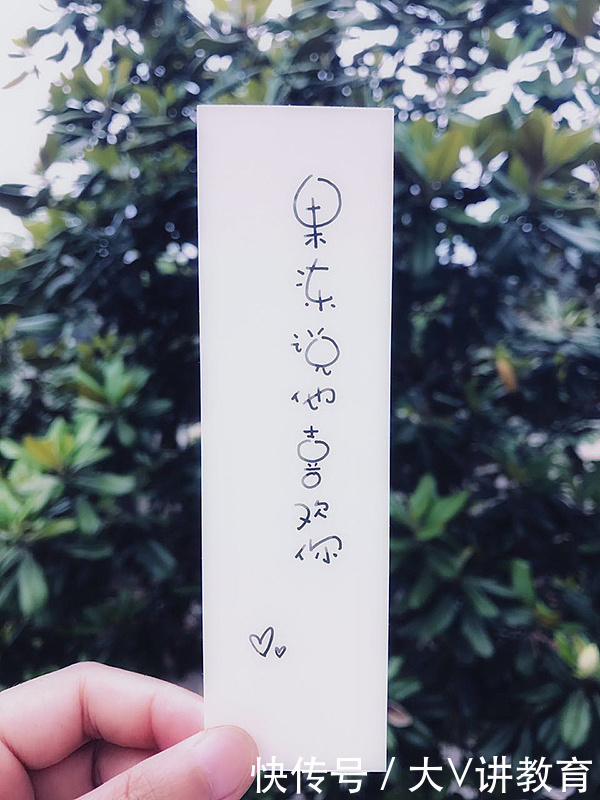 果冻说他喜欢你
快传号 / 大V讲教育